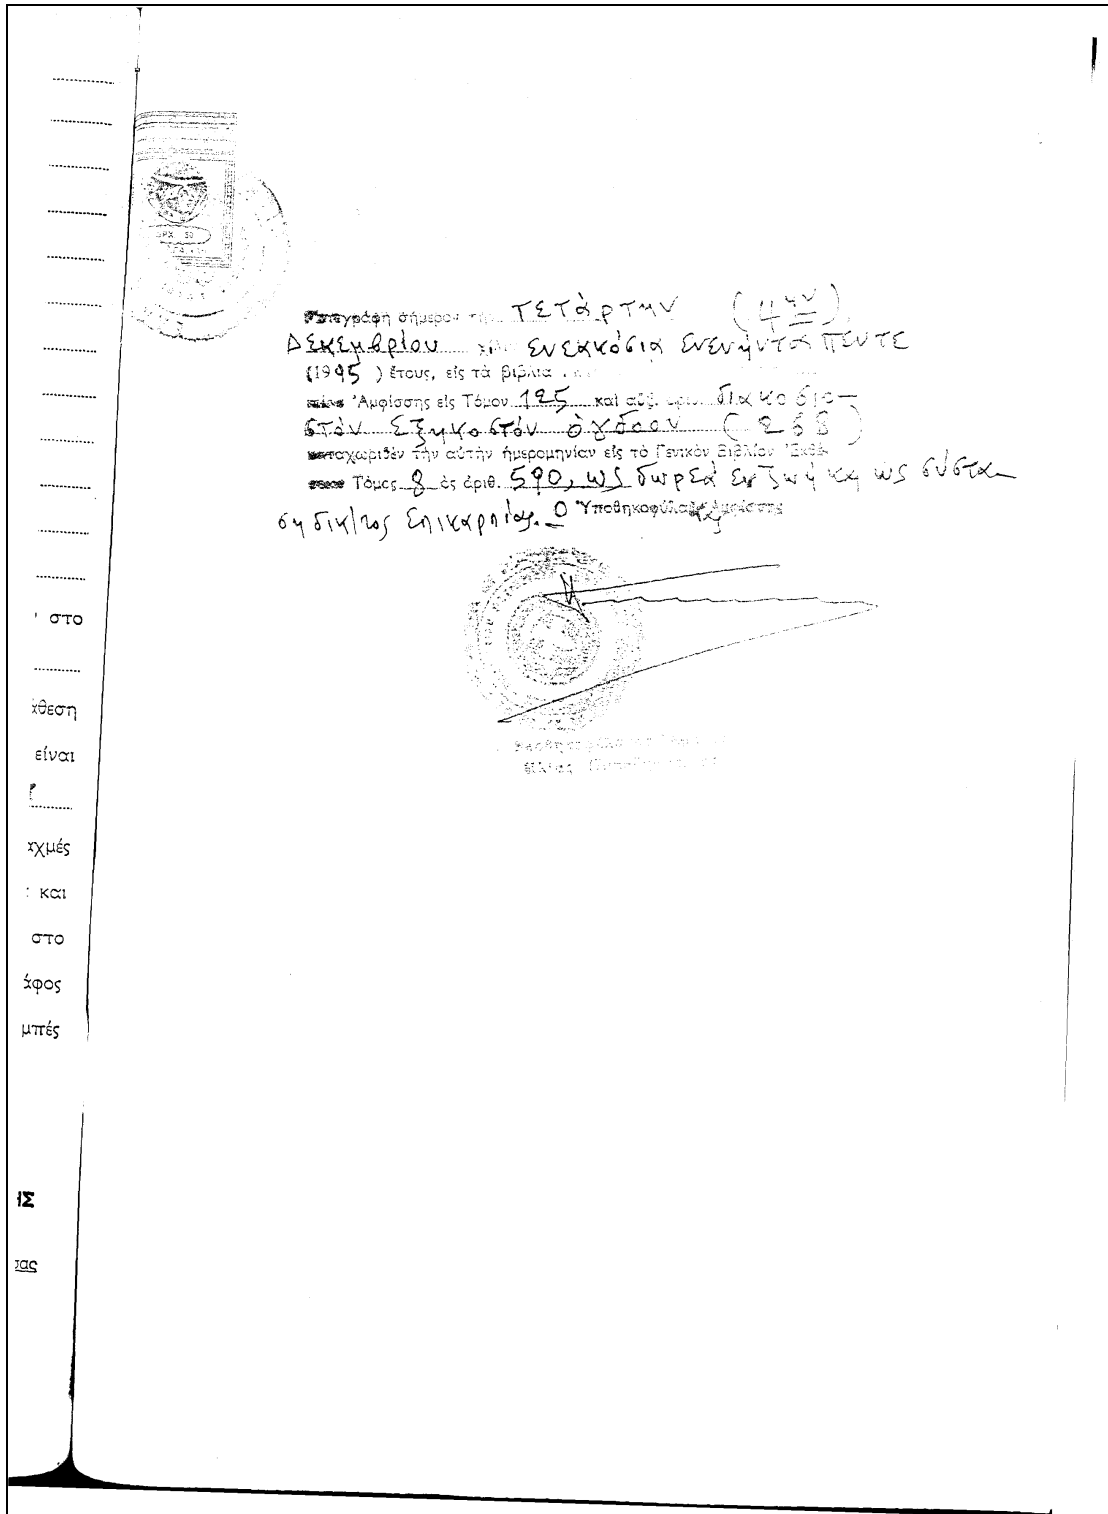 στο
άθεση
είναι
αχμές
και
στο
άφος
μπές
ΗΣ
σας
ΔΡΧ 50
σήμερον την τετάρτην (4ην)
Δεκεμβρίου ενεακόσια ενενήντα πέντε
(1995) έτους, εἰς τὰ βιβλία
Ἀμφίσσης εἰς Τόμον 125 καὶ αὔξ. ἀριθ. διακοσιο-
στόν εξηκοστόν όγδοον (268)
καταχωρισθὲν τὴν αὐτὴν ἡμερομηνίαν εἰς τὸ Γενικὸν Βιβλίον Ἐκθέ-
Τόμος 8 ὡς ἀριθ. 590, ως δωρεά εν ζωή και ως σύστα-
ση δικ/τος επικαρπίας. Ο Ὑποθηκοφύλαξ Ἀμφίσσης